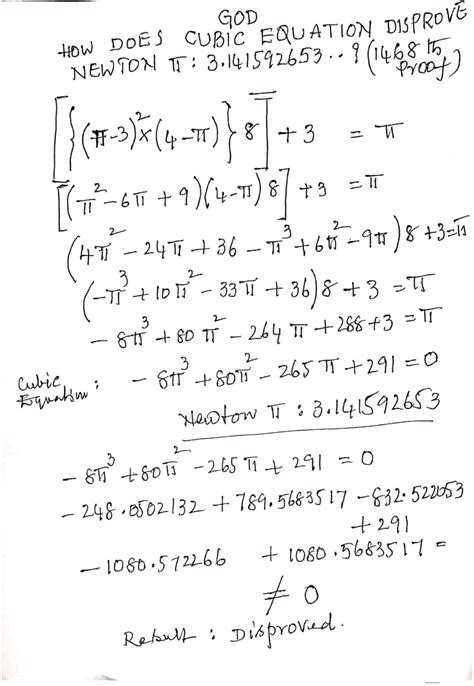 GOD
HOW DOES CUBIC EQUATION DISPROVE
NEWTON π : 3.141592653..? (1468 th Proof)
[{(π-3)²×(4-π)}8]+3 = π
[(π²-6π+9)(4-π)8]+3 = π
(4π²-24π+36-π³+6π²-9π)8+3=π
(-π³+10π²-33π+36)8+3=π
-8π³+80π²-264π+288+3=π
Cubic Equation: -8π³+80π²-265π+291=0
Newton π : 3.141592653
-8π³+80π²-265π+291=0
-248.0502132+789.5683517-832.522053
+291
-1080.572266 +1080.5683517=
≠ 0
Result : Disproved.